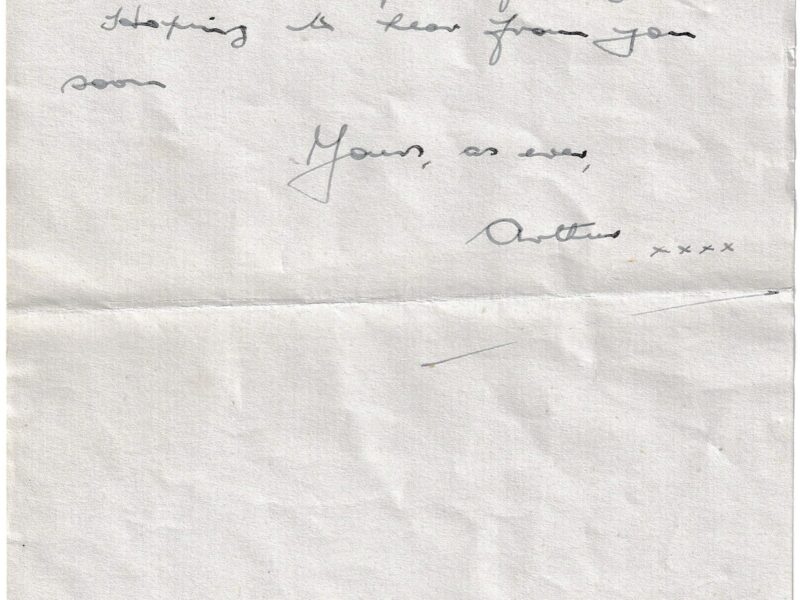 Hoping to hear from you
soon
Yours, as ever,
Arthur xxxx